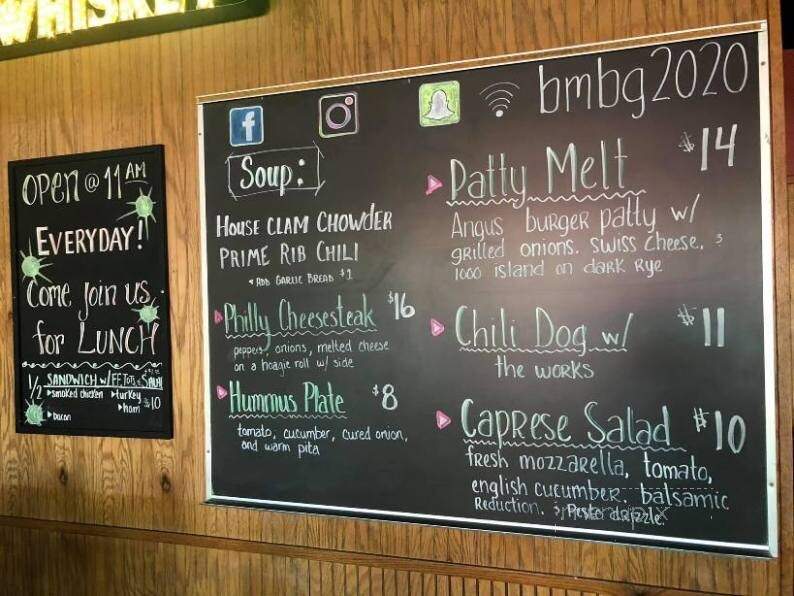 WHISKEY
OPEN @ 11 AM
EVERYDAY!
Come join us
for LUNCH
1/2 SANDWICH w/
smoked chicken turkey
ham $10
Bacon
bmbg2020
Soup:
HOUSE CLAM CHOWDER
PRIME RIB CHILI
ADD GARLIC BREAD $1
Philly Cheesesteak $16
peppers, onions, melted cheese
on a hoagie roll w/ side
Hummus Plate $8
tomato, cucumber, cured onion,
and warm pita
Patty Melt $14
Angus burger patty w/
grilled onions. Swiss Cheese, &
1000 island on dark Rye
Chili Dog w/ $11
the works
CAPRESE Salad $10
fresh mozzarella, tomato,
english cucumber. balsamic
Reduction. & Pesto drizzle.